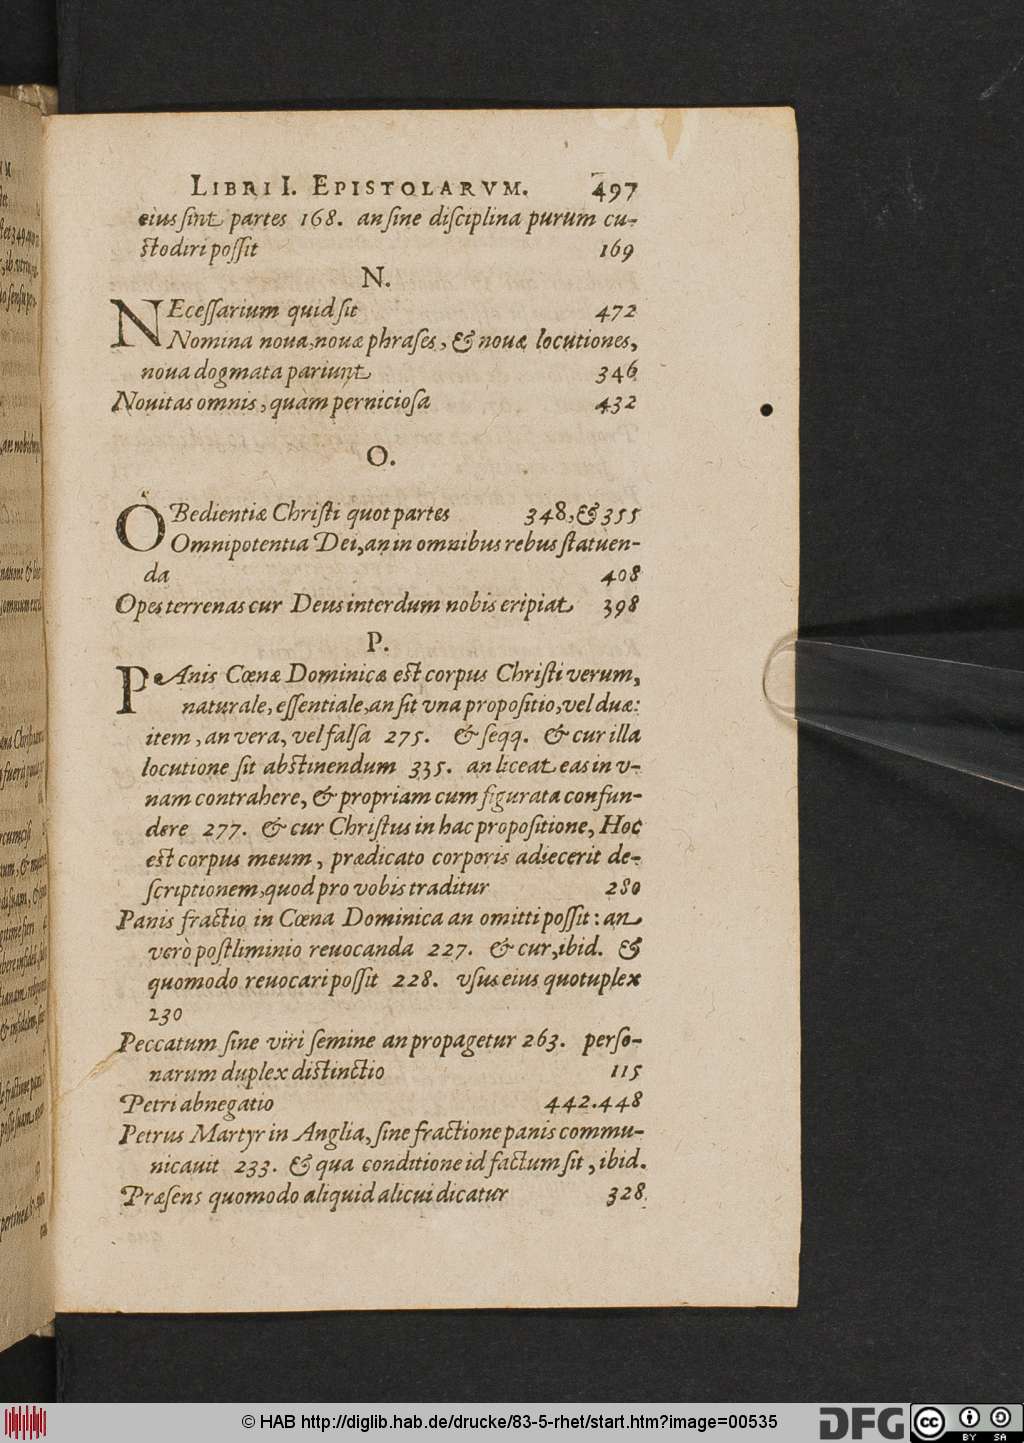 LIBRI I. EPISTOLARVM. 497
eius ſint partes 168. an ſine diſciplina purum cu-
ſtodiri poſſit 169
N.
NEceſſarium quid ſit 472
Nomina noua, nouæ phraſes, & nouæ locutiones,
noua dogmata pariunt 346
Nouitas omnis, quàm pernicioſa 432
O.
OBedientiæ Chriſti quot partes 348, & 355
Omnipotentia Dei, an in omnibus rebus ſtatuen-
da 408
Opes terrenas cur Deus interdum nobis eripiat 398
P.
PAnis Cœnæ Dominicæ eſt corpus Chriſti verum,
naturale, eſſentiale, an ſit vna propoſitio, vel duæ:
item, an vera, vel falſa 275. & ſeqq. & cur illa
locutione ſit abſtinendum 335. an liceat eas in v-
nam contrahere, & propriam cum figurata confun-
dere 277. & cur Chriſtus in hac propoſitione, Hoc
eſt corpus meum, prædicato corporis adiecerit de-
ſcriptionem, quod pro vobis traditur 280
Panis fractio in Cœna Dominica an omitti poſſit: an
verò poſtliminio reuocanda 227. & cur, ibid. &
quomodo reuocari poſſit 228. vſus eius quotuplex
230
Peccatum ſine viri ſemine an propagetur 263. perſo-
narum duplex diſtinctio 115
Petri abnegatio 442.448
Petrus Martyr in Anglia, ſine fractione panis commu-
nicauit 233. & qua conditione id factum ſit, ibid.
Præſens quomodo aliquid alicui dicatur 328.
© HAB http://diglib.hab.de/drucke/83-5-rhet/start.htm?image=00535
DFG
cc BY SA